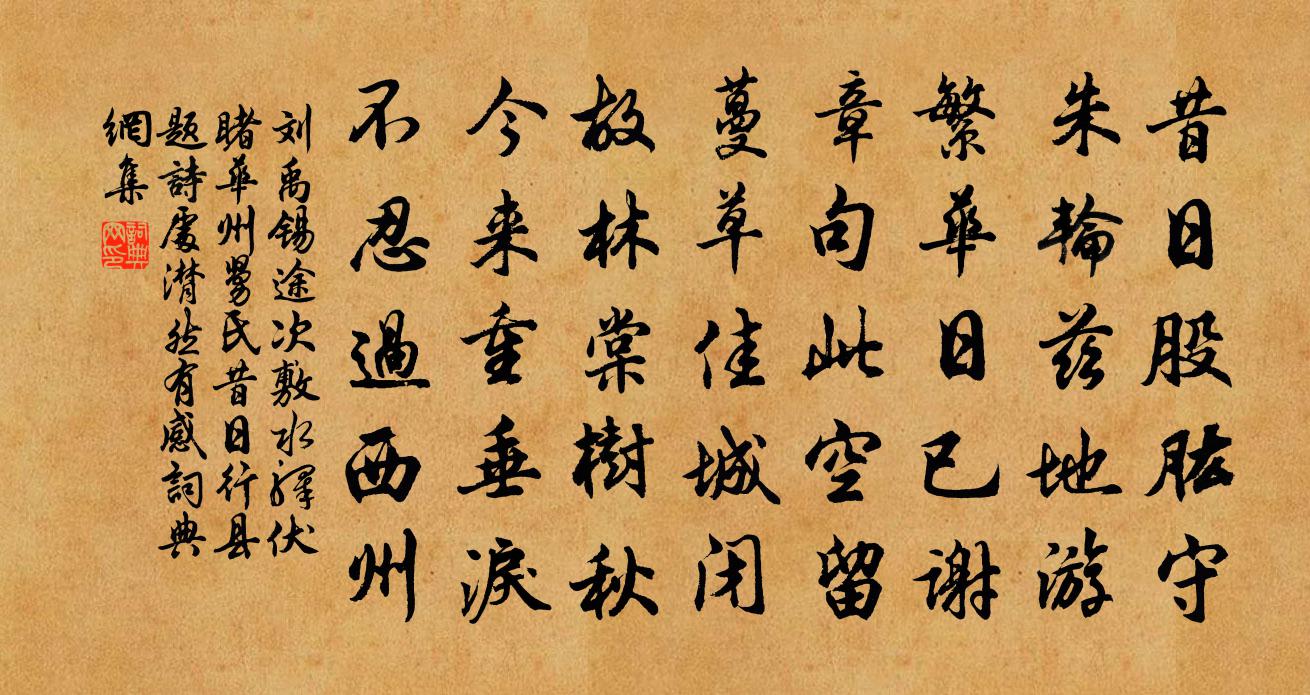 昔日股肱守
朱輪茲地游
繁華日已謝
章句此空留
蔓草佳城闭
故林棠樹秋
今来重垂淚
不忍過西州
刘禹锡途次敷水驿伏
睹華州舅氏昔日行县
题詩處潸然有感詞典
網集
詞典網印